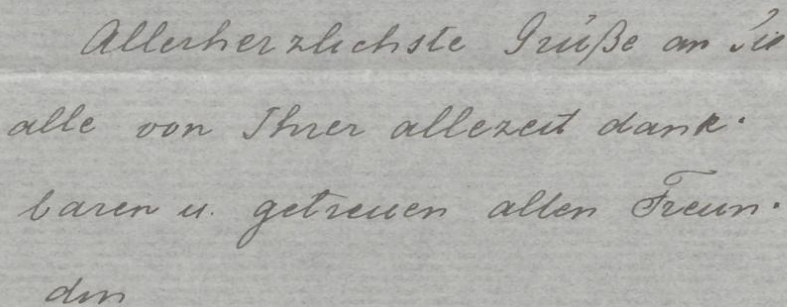 Allerherzlichste Grüße an Sie
alle von Ihrer allezeit dank-
baren u. getreuen alten Freun-
din